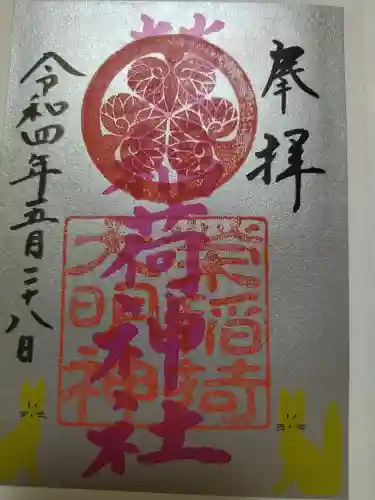 奉拝
稲荷神社
大明神
令和四年五月二十八日